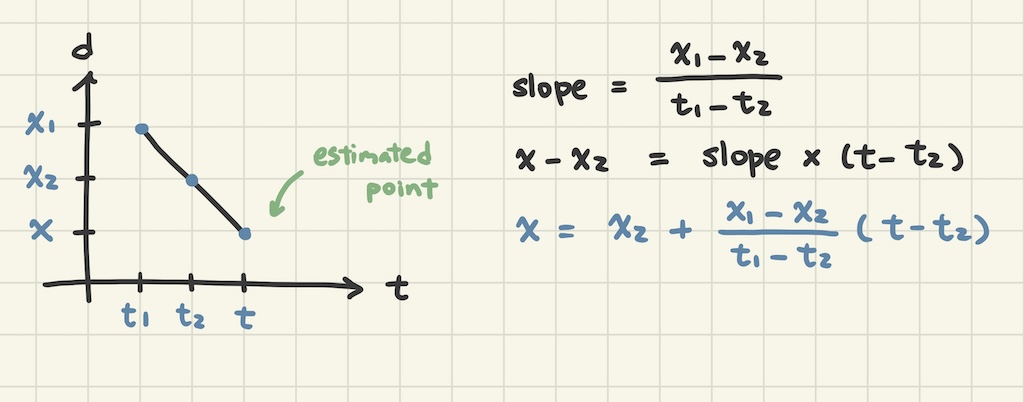 d
x₁
x₂
x
t₁ t₂ t
t
estimated
point
slope = (x₁ - x₂) / (t₁ - t₂)
x - x₂ = slope × (t - t₂)
x = x₂ + (x₁ - x₂) / (t₁ - t₂) (t - t₂)